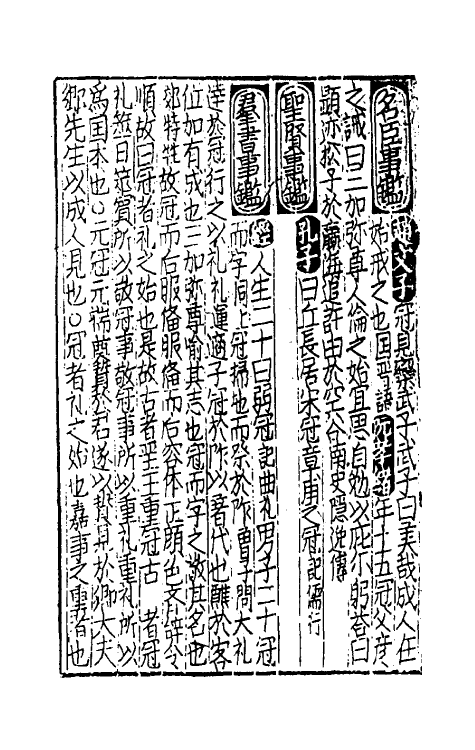 名臣事鑑 趙文子冠見欒武子武子曰美哉成人在
始戒之也国晋語 阮孝緒年十五冠父彦
之誡曰三加弥尊人倫之始宜思自勉以庇尓躬荅曰
願亦松子於瀛海追許由於空谷南史隱逸傳
聖賢事鑑 孔子曰丘長居宋冠章甫之冠記儒行
羣書事鑑 經人生二十曰弱冠記曲礼男子二十冠
而字同上冠掃地而祭於祢曽子問大礼
逹於冠行之以礼礼運適子冠於阼以著代也醮於客
位加有成也三加弥尊喻其志也冠而字之敬其名也
郊特牲故冠而后服备服备而后容体正顔色齐辞令
順故曰冠者礼之始也是故古者圣王重冠古 者冠
礼筮日筮賓所以敬冠事敬冠事所以重礼重礼所以
為国本也○元冠元端奠贄於君遂以贄見於鄉大夫
鄉先生以成人見也○冠者礼之始也嘉事之重者也